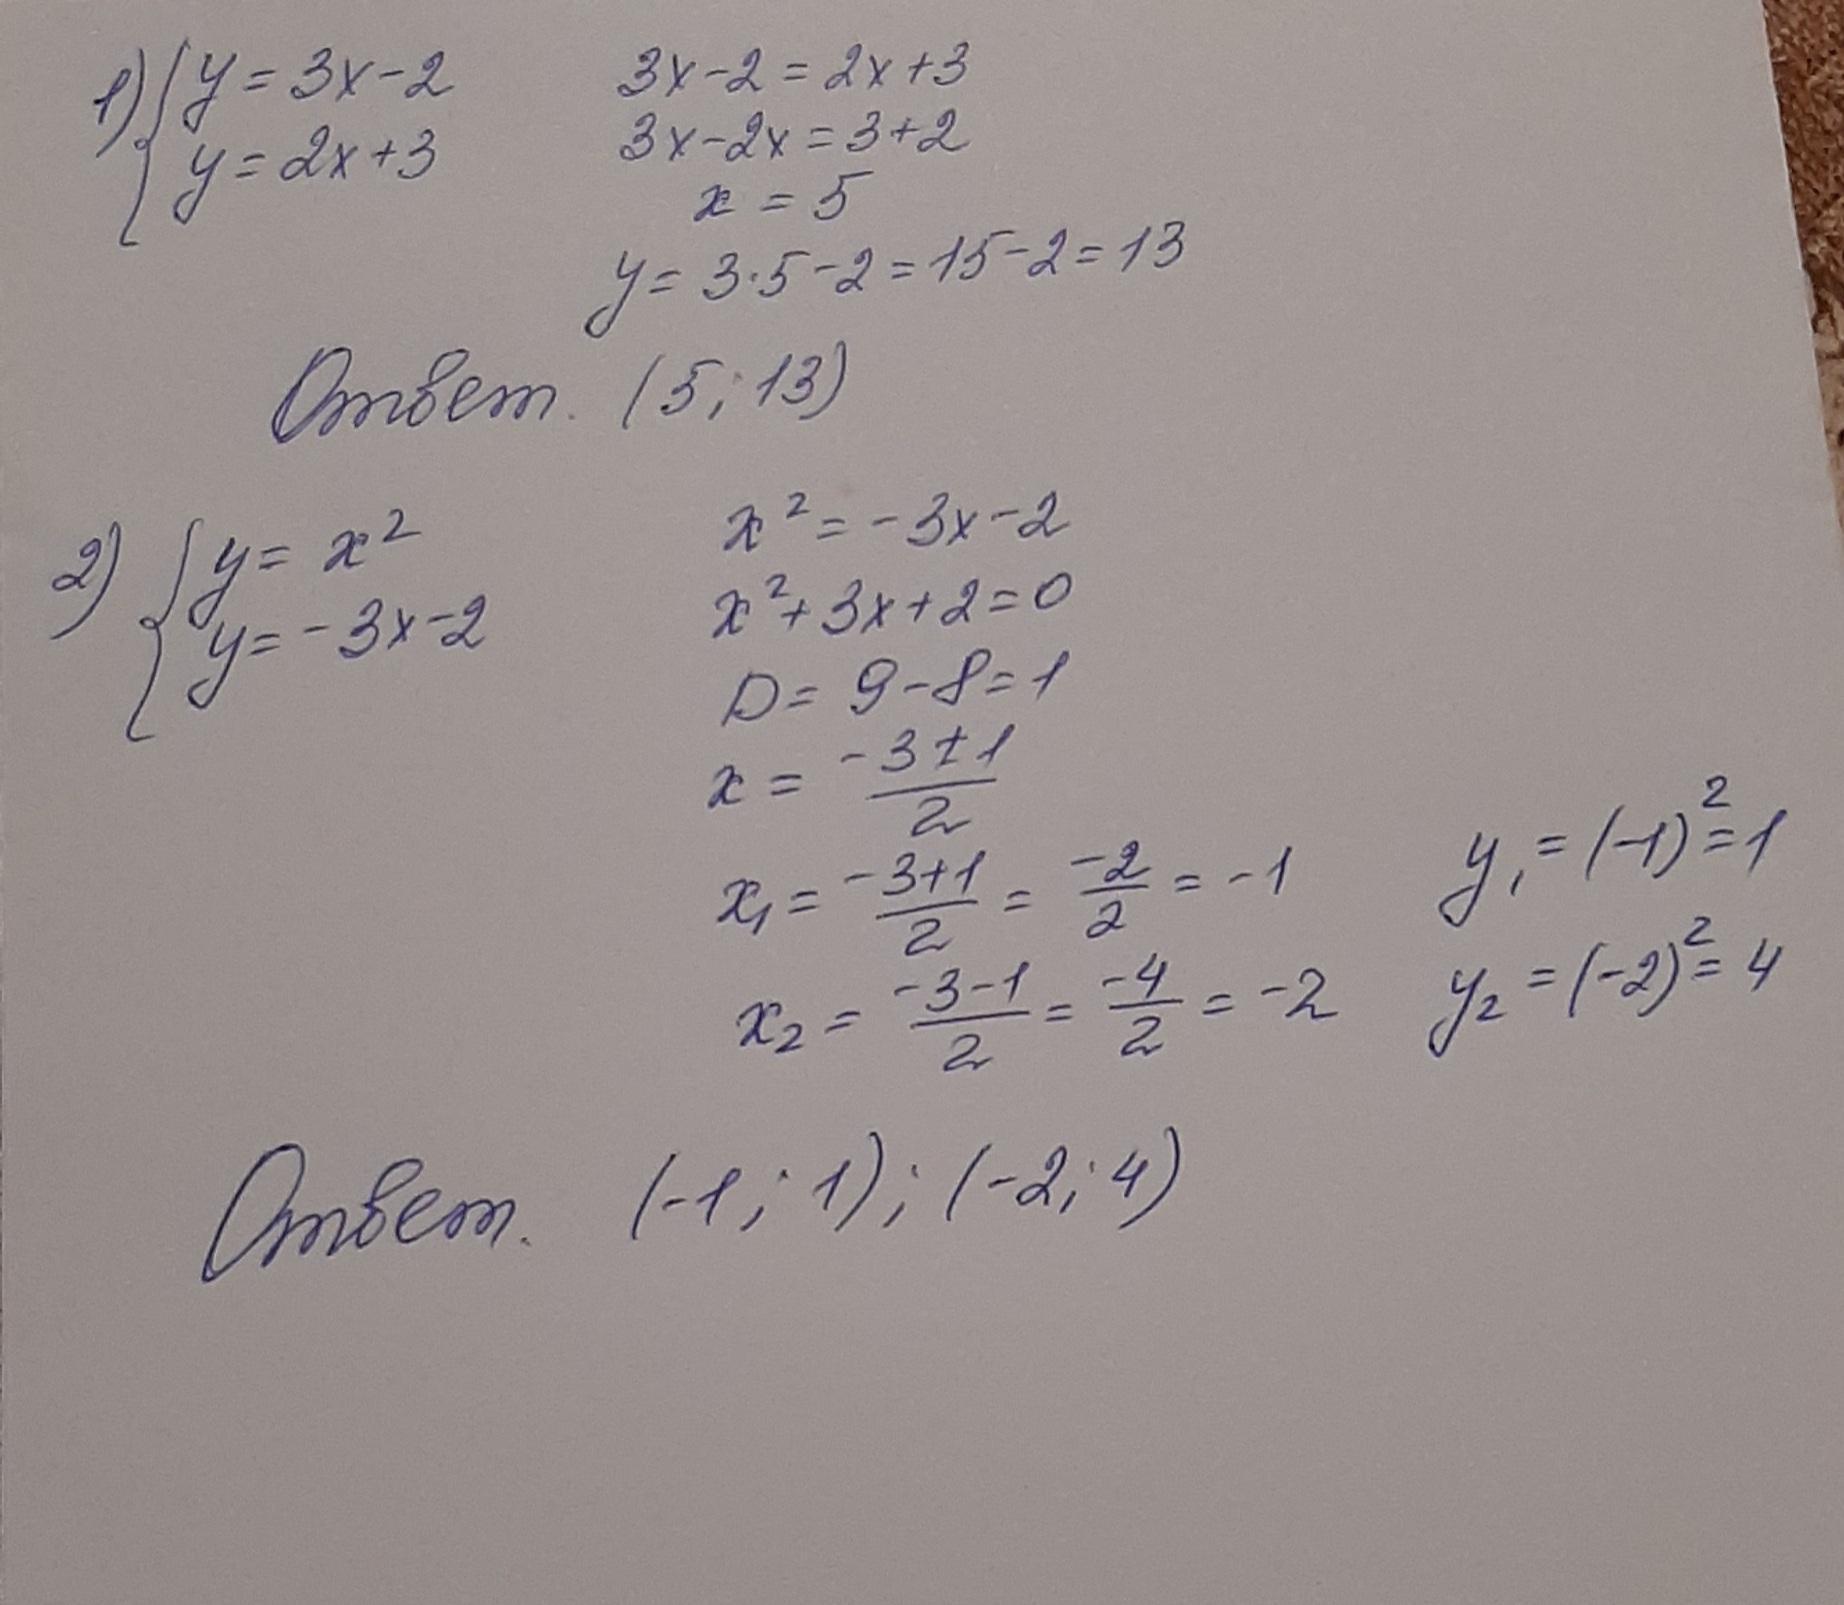 1) { y = 3x - 2
y = 2x + 3
3x - 2 = 2x + 3
3x - 2x = 3 + 2
x = 5
y = 3·5 - 2 = 15 - 2 = 13
Ответ. (5; 13)
2) { y = x²
y = -3x - 2
x² = -3x - 2
x² + 3x + 2 = 0
D = 9 - 8 = 1
x = (-3 ± 1)/2
x₁ = (-3+1)/2 = -2/2 = -1 y₁ = (-1)² = 1
x₂ = (-3-1)/2 = -4/2 = -2 y₂ = (-2)² = 4
Ответ. (-1; 1); (-2; 4)